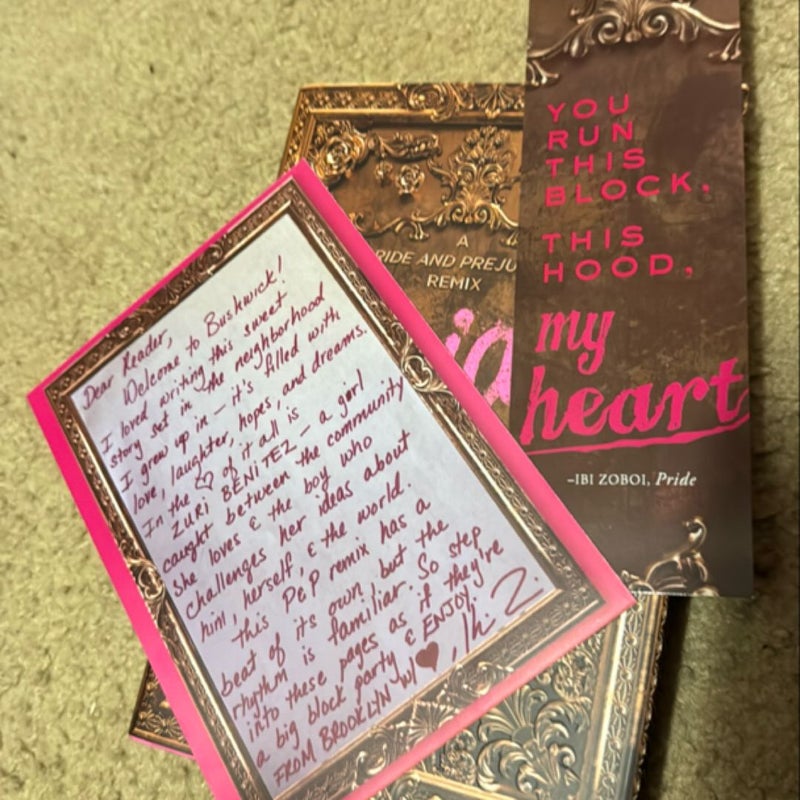 Dear Reader,
Welcome to Bushwick!
I loved writing this sweet
story set in the neighborhood
I grew up in — it's filled with
love, laughter, hopes, and dreams.
In the ♡ of it all is
ZURI BENITEZ — a girl
caught between the community
she loves & the boy who
challenges her ideas about
him, herself, & the world.
this P&P remix has a
beat of its own but the
rhythm is familiar. So step
into these pages as if they're
a big block party & ENJOY.
FROM BROOKLYN w/ ♥,
A
RIDE AND PREJU
REMIX
YOU
RUN
THIS
BLOCK,
THIS
HOOD,
my
heart
–IBI ZOBOI, Pride